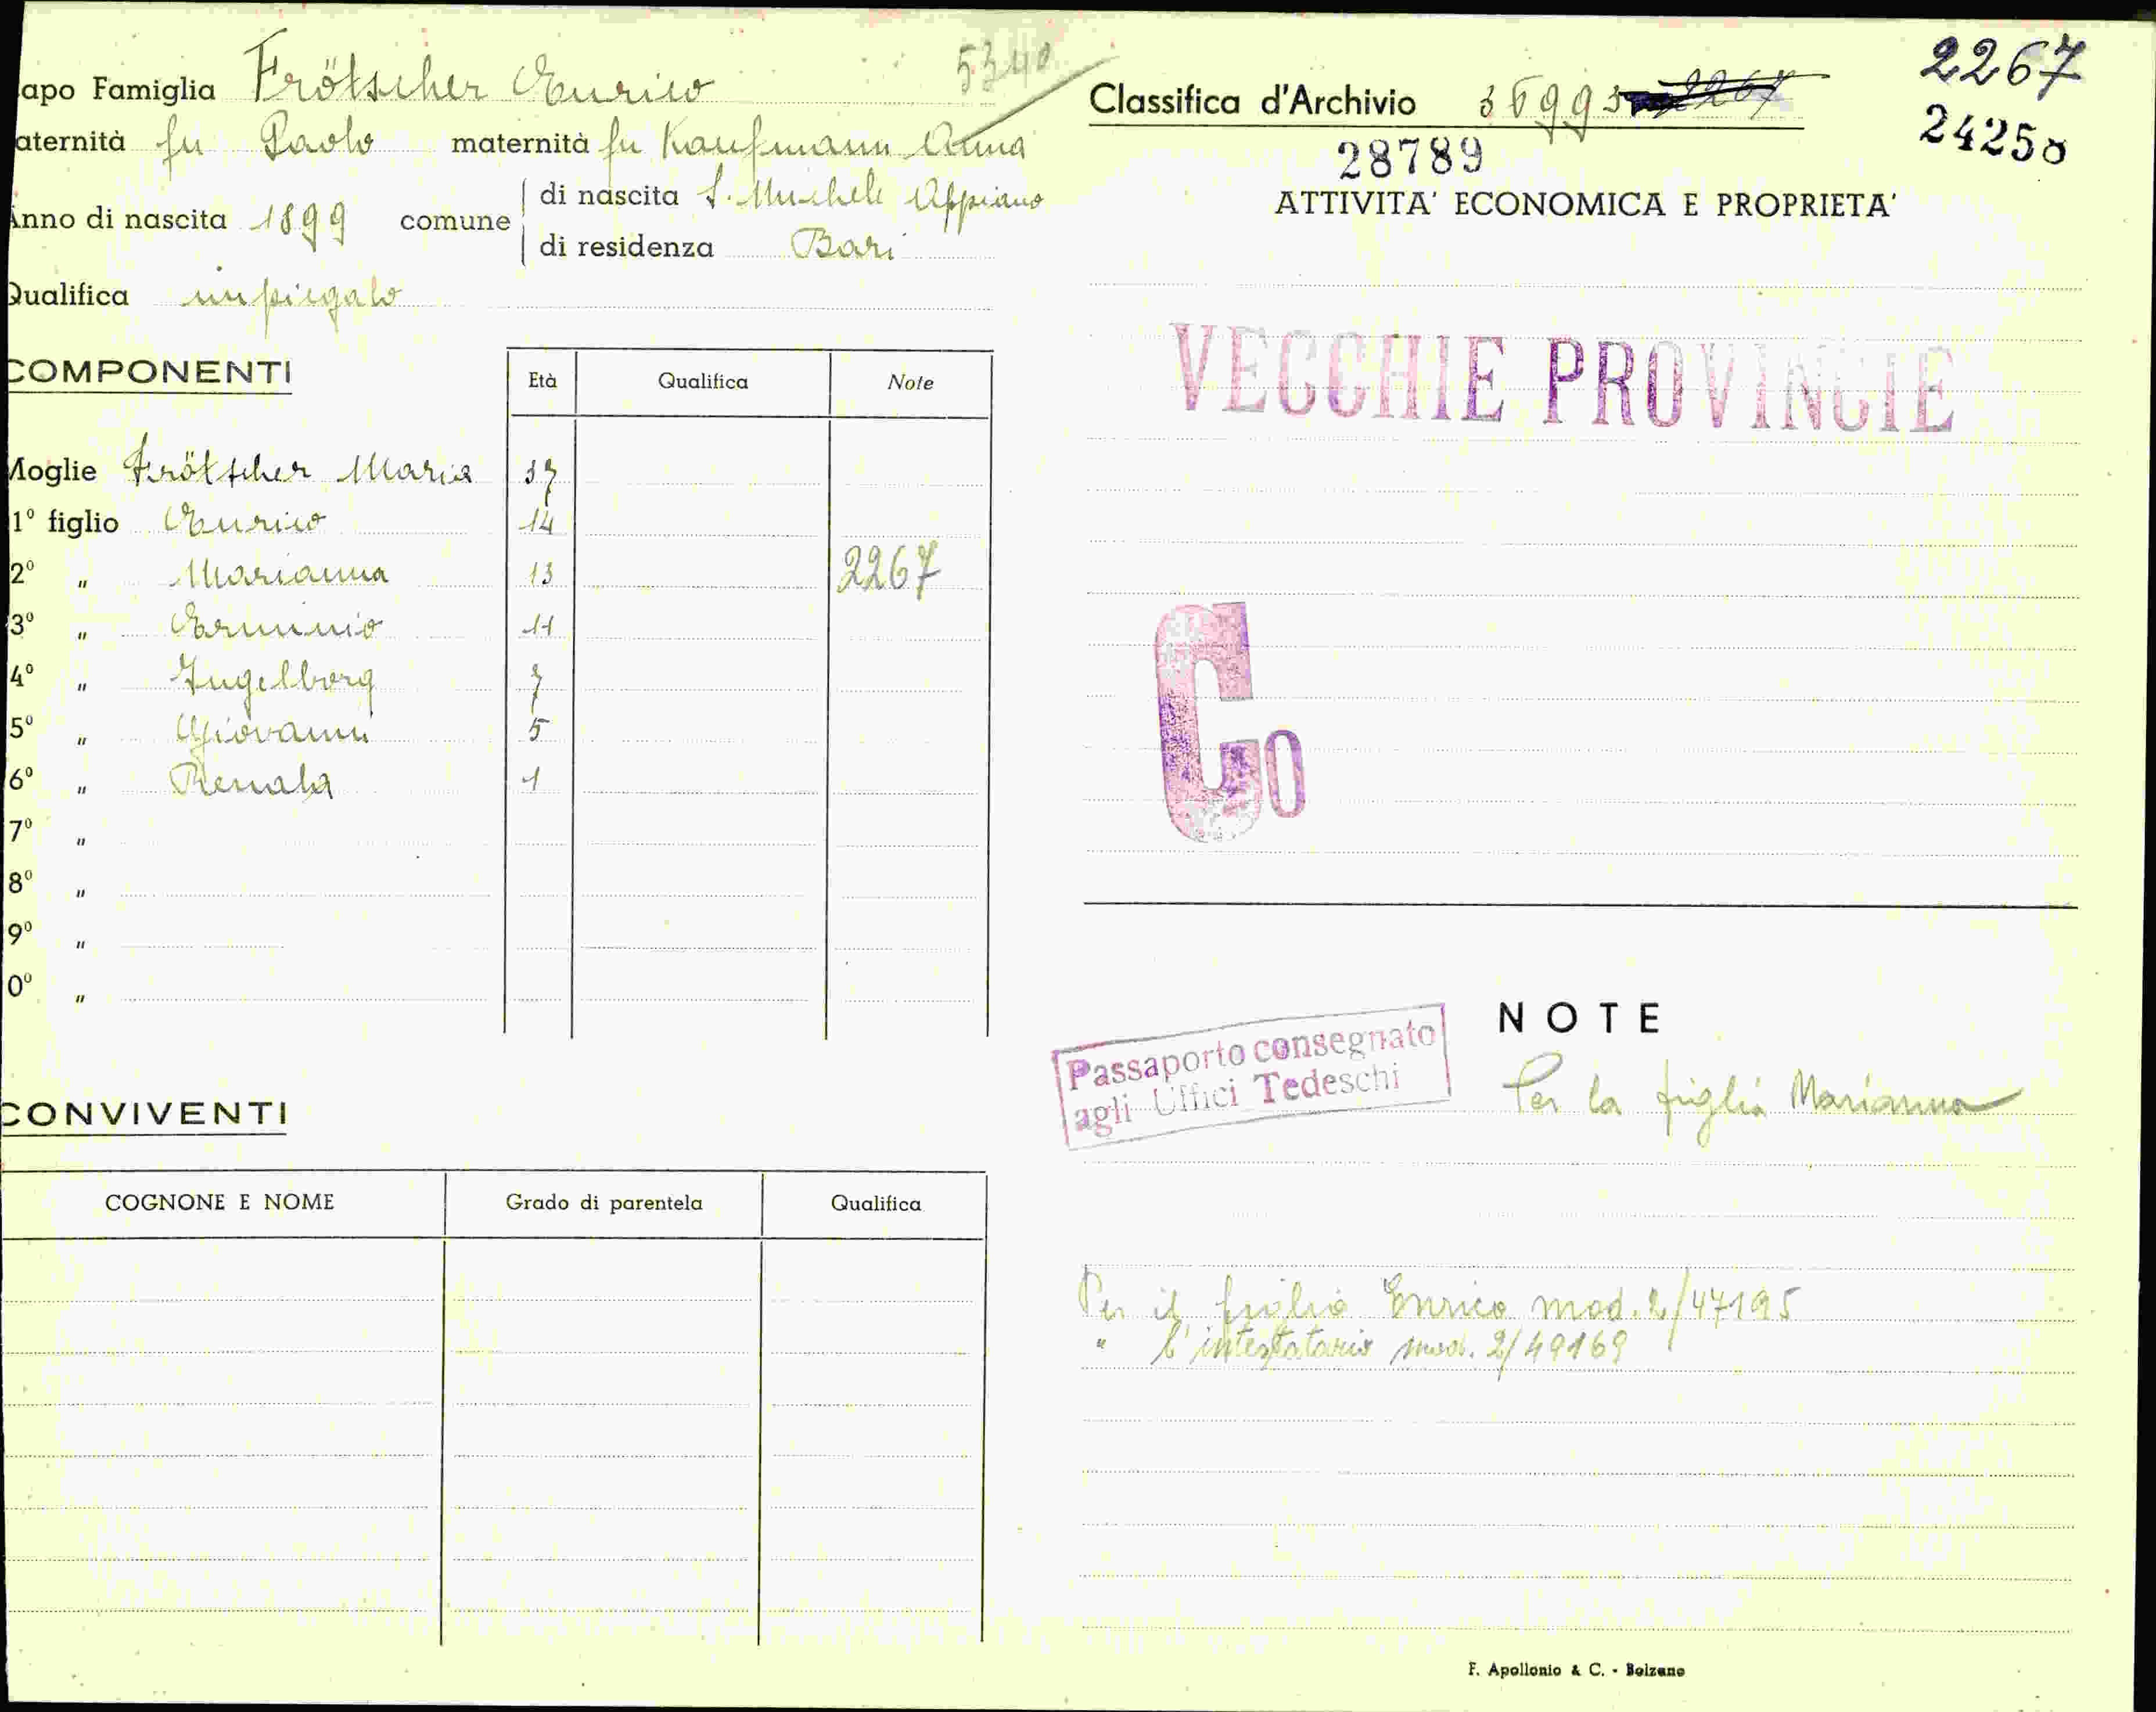 apo Famiglia Frötscher Enrico
5340
aternità fu Paolo maternità fu Kaufmann Anna
Anno di nascita 1899 comune
di nascita S. Michele Appiano
di residenza Bari
Qualifica impiegato
COMPONENTI
Età Qualifica Note
Moglie Frötscher Maria 37
1° figlio Enrico 14
2° " Marianna 13 2267
3° " Erminio 11
4° " Ingelborg 7
5° " Giovanni 5
6° " Renata 1
7° "
8° "
9° "
0° "
CONVIVENTI
COGNONE E NOME Grado di parentela Qualifica
2267
Classifica d'Archivio 36993 2267
24250
28789
ATTIVITA' ECONOMICA E PROPRIETA'
VECCHIE PROVINCIE
Co
NOTE
Passaporto consegnato
agli Uffici Tedeschi
Per la figlia Marianna
Per il figlio Enrico mod. 2/47195
" l'intestatario mod. 2/49169
F. Apollonio & C. - Bolzano